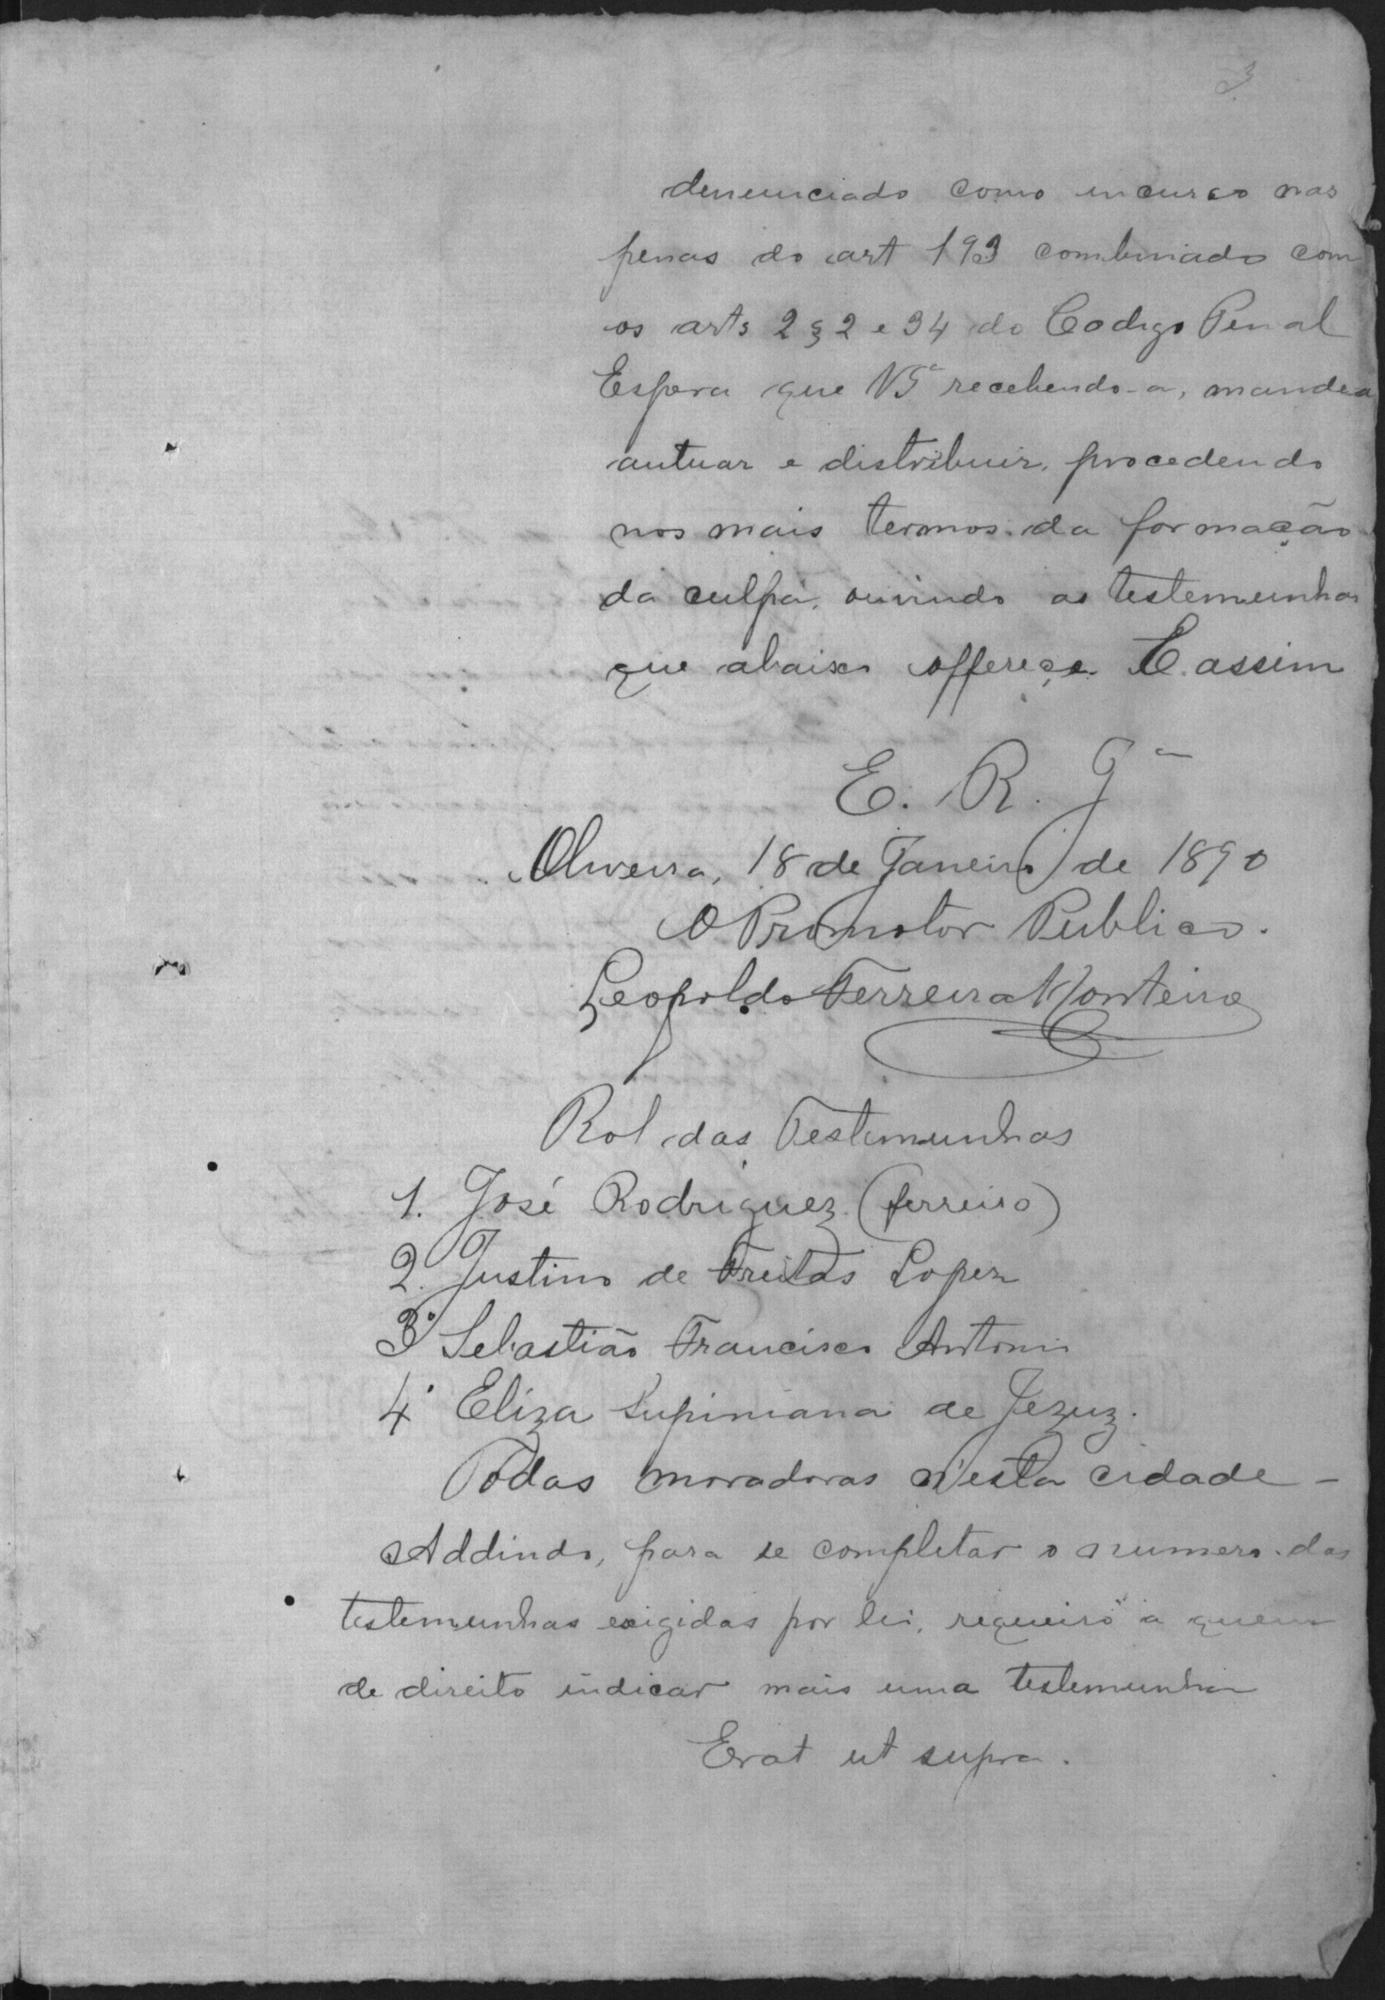 3
denunciado como incurso nas
penas do art 193 combinado com
os arts 2 § 2 e 34 do Codigo Penal
Espera que VSª recebendo-a, mande-a
autuar e distribuir, procedendo
nos mais termos da formação
da culpa, ouvindo as testemunhas
que abaixo offereçe. E assim
E. R. Jª
Oliveira, 18 de Janeiro de 1890
O Promotor Publico.
Leopoldo Ferreira Monteiro
Rol das Testemunhas
1. José Rodriguez (ferreiro)
2. Justino de Freitas Lopez
3º Sebastião Francisco Antonio
4º Eliza Lupiniana de Jezuz.
Todas moradoras n'esta cidade -
Addindo, para se completar o numero das
testemunhas exigidas por lei, requeiro a quem
de direito indicar mais uma testemunha
Erat ut supra.